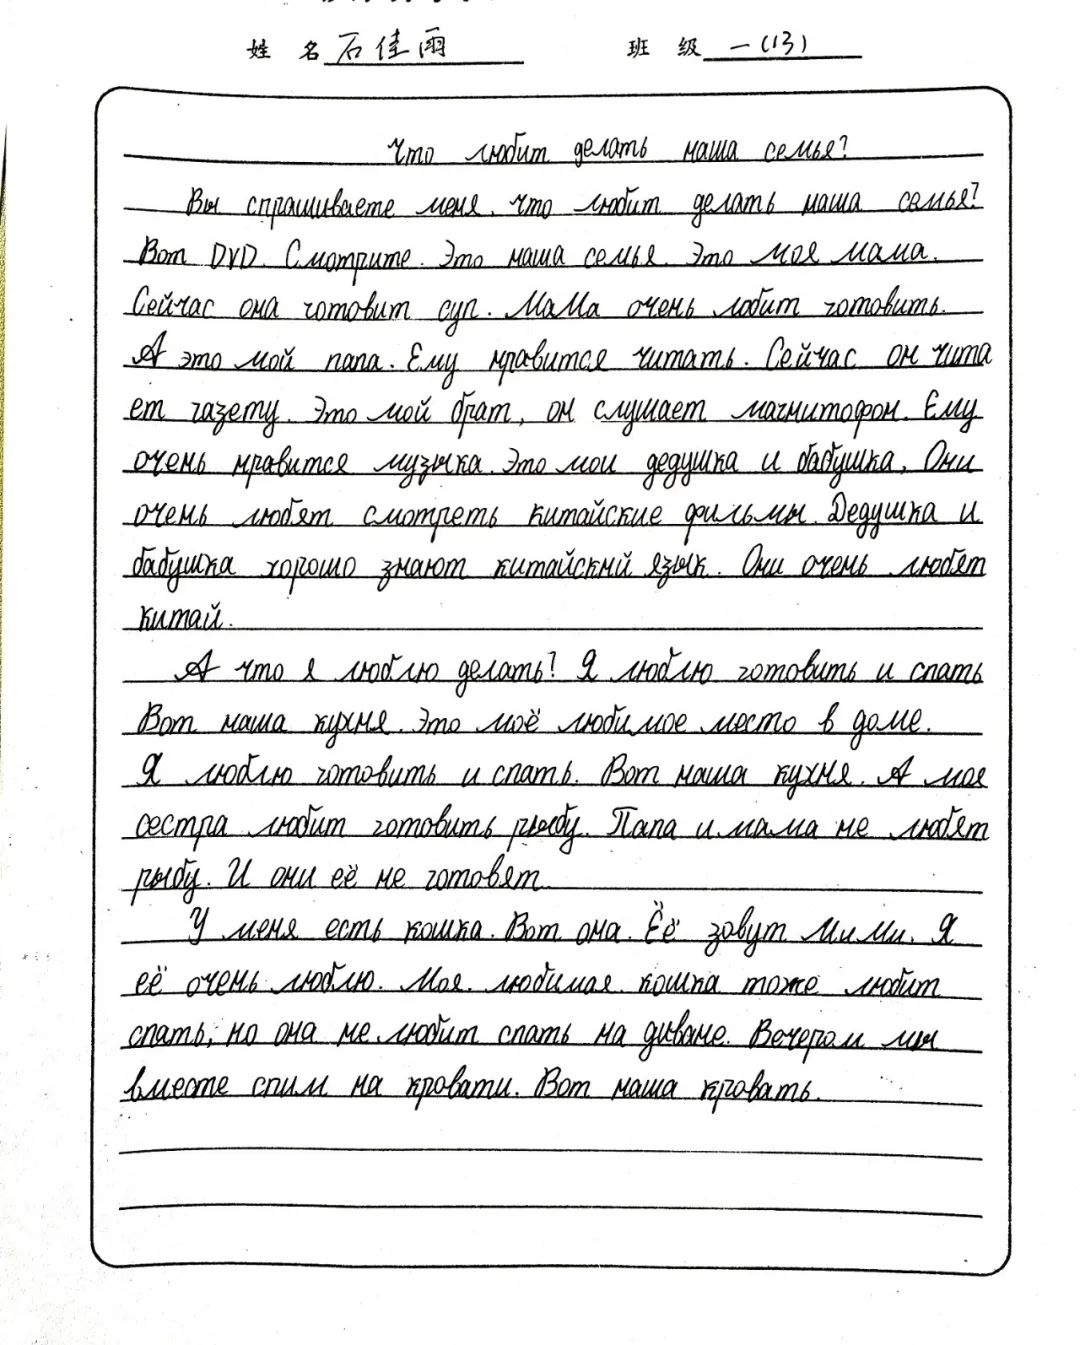 姓 名 石佳雨 班 级 一(13)
Что любит делать наша семья?
Вы спрашиваете меня, что любит делать наша семья?
Вот DVD. Смотрите. Это наша семья. Это моя мама.
Сейчас она готовит суп. Мама очень лобит готовить.
А это мой папа. Ему нравится читать. Сейчас он чита
ет газету. Это мой брат, он слушает магнитофон. Ему
очень нравится музыка. Это мои дедушка и бабушка. Они
очень любят смотреть китайские фильмы. Дедушка и
бабушка хорошо знают китайский язык. Они очень любят
китай.
А что я люблю делать? Я люблю готовить и спать
Вот наша кухня. Это моё любимое место в доме.
Я люблю готовить и спать. Вот наша кухня. А моя
сестра любит готовить рыбу. Папа и мама не любят
рыбу. И они её не готовят.
У меня есть кошка. Вот она. Её зовут Мими. Я
её очень люблю. Моя любимая кошка тоже любит
спать, но она не любит спать на диване. Вечером мы
вместе спим на кровати. Вот наша кровать.